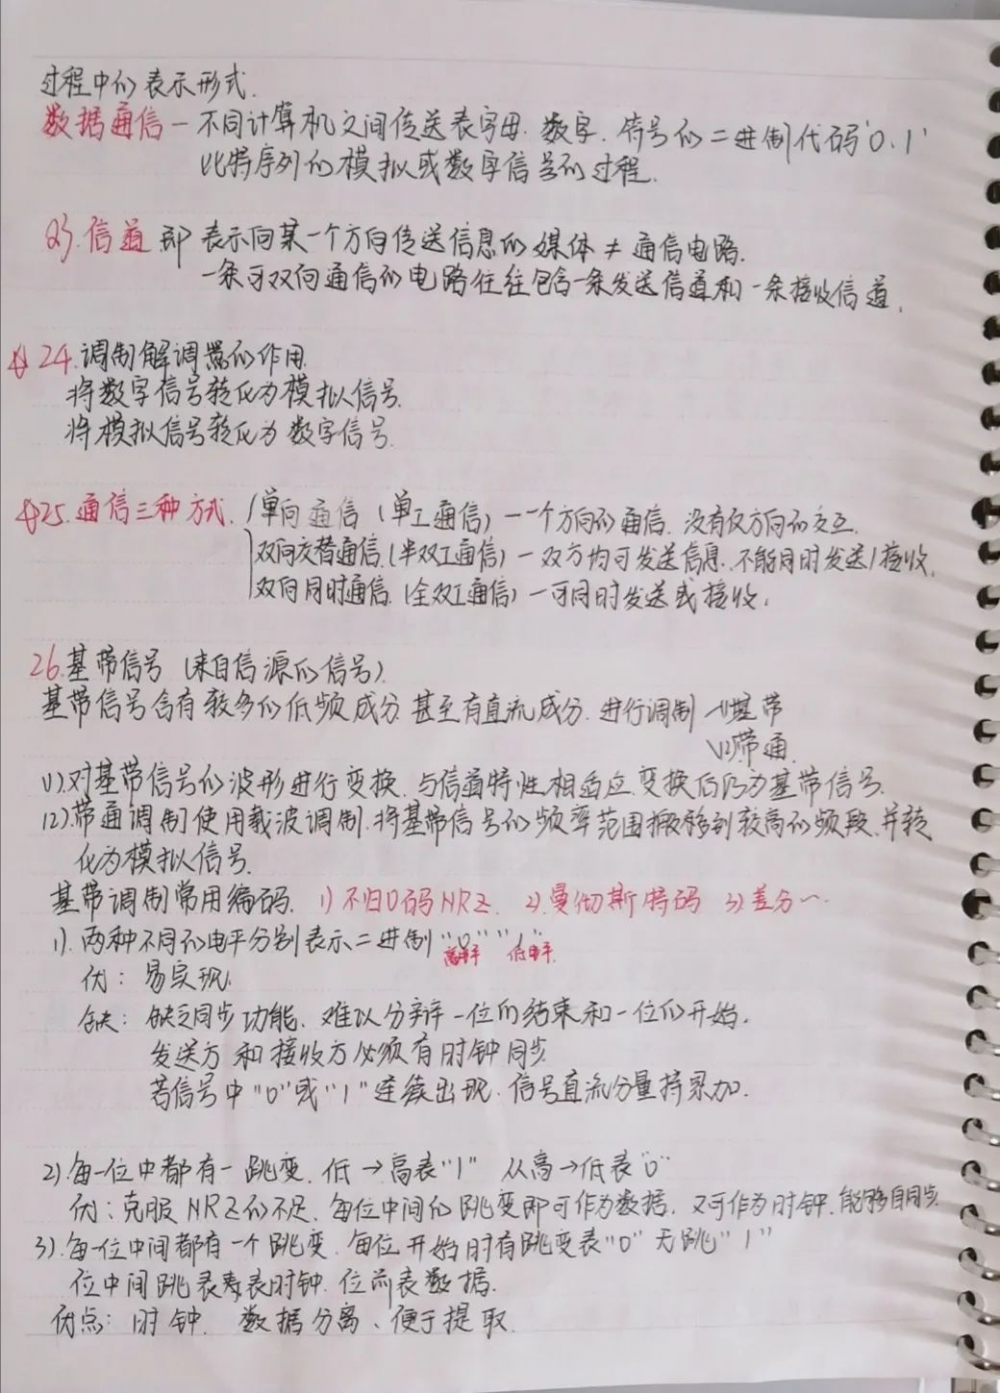 过程中的表示形式.
数据通信 — 不同计算机之间传送表字母. 数字. 符号的二进制代码'0.1'
比特序列的模拟或数字信号的过程.
23.信道 即 表示向某一个方向传送信息的媒体 ≠ 通信电路.
一条可双向通信的电路往往包含一条发送信道和一条接收信道.
☆24.调制解调器的作用.
将数字信号转化为模拟信号.
将模拟信号转化为数字信号.
☆25.通信三种方式. 单向通信 (单工通信) — 一个方向的通信. 没有反方向的交互.
双向交替通信.(半双工通信) — 双方均可发送信息. 不能同时发送/接收.
双向同时通信. (全双工通信) — 可同时发送或接收.
26.基带信号 (来自信源的信号).
基带信号含有较多的低频成分. 甚至有直流成分. 进行调制 (1)基带
(2)带通.
(1).对基带信号的波形进行变换. 与信道特性相适应. 变换后仍为基带信号.
(2).带通调制使用载波调制. 将基带信号的频率范围搬移到较高的频段.并转
化为模拟信号.
基带调制常用编码. 1) 不归0码NRZ. 2).曼彻斯特码 3) 差分~
1). 两种不同的电平分别表示二进制"0" "1"
高电平 低电平.
优: 易实现.
缺: 缺乏同步功能. 难以分辩一位的结束和一位的开始.
发送方和接收方必须有时钟同步
若信号中"0"或"1"连续出现. 信号直流分量将累加.
2).每一位中都有一跳变. 低→高表"1" 从高→低表"0"
优: 克服NRZ的不足. 每位中间的跳变即可作为数据. 又可作为时钟.能够自同步.
3).每一位中间都有一个跳变. 每位开始时有跳变表"0" 无跳"1"
位中间跳表表时钟. 位前表数据.
优点: 时钟. 数据分离、便于提取.